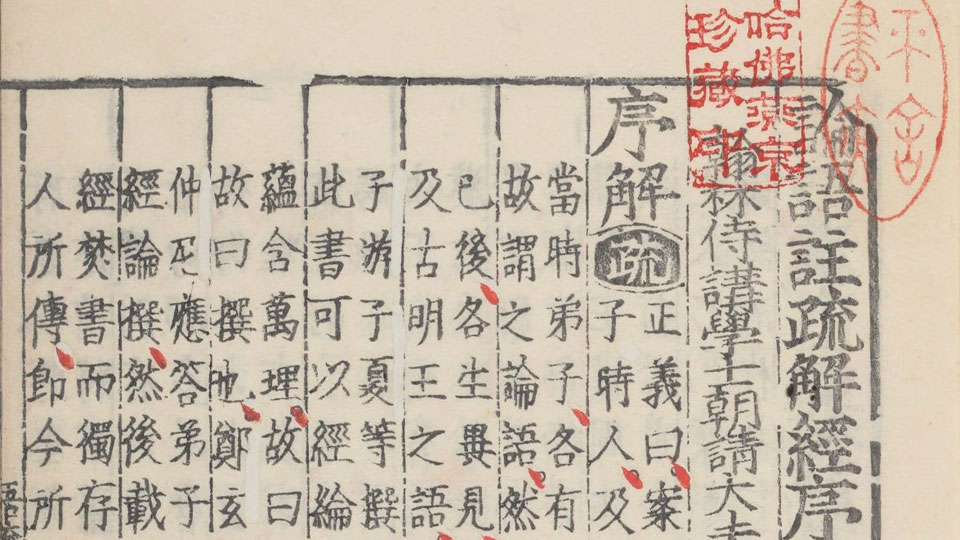 論語註疏解經序
翰林侍講學士朝請大
序解疏
正義曰案
子時人及
當時弟子各有
故謂之論語然
已後各生異見
及古明王之語
子游子夏等撰
此書可以經綸
蘊含萬理故曰
故曰撰也鄭玄
仲尼應答弟子
經論撰然後載
經焚書而獨存
人所傳即今所
哈佛燕京
珍藏印